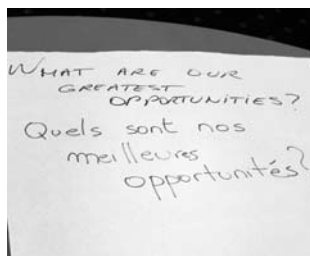 WHAT ARE OUR
GREATEST
OPPORTUNITIES?
Quels sont nos
meilleures
opportunités?